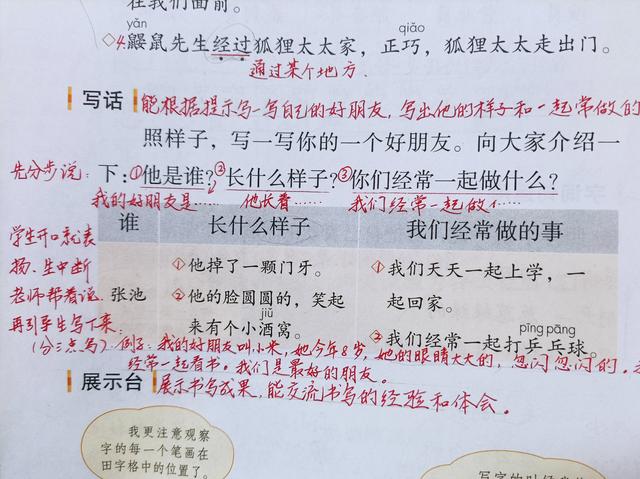 在我们面前。
yǎn qiǎo
◇4.鼹鼠先生经过狐狸太太家，正巧，狐狸太太走出门。
通过某个地方.
写话 能根据提示写一写自己的好朋友，写出他的样子和一起常做的
照样子，写一写你的一个好朋友。向大家介绍一
先分步说：下：①他是谁？②长什么样子？③你们经常一起做什么？
我的好朋友是…… 他长着…… 我们经常一起做
谁 长什么样子 我们经常做的事
学生开口就表
扬、生中断
老师帮着说.
再引导生写下来.
张池
①他掉了一颗门牙。
②他的脸圆圆的，笑起
jiǔ
来有个小酒窝。
①我们天天一起上学，一
起回家。
pīng pāng
②我们经常一起打乒乓球。
(分三点写) 例子：我的好朋友叫小米，她今年8岁，她的眼睛大大的，忽闪忽闪的。
经常一起看书。我们是最好的朋友。
展示台 展示书写成果，能交流书写的经验和体会。
我更注意观察
字的每一个笔画在
田字格中的位置了。